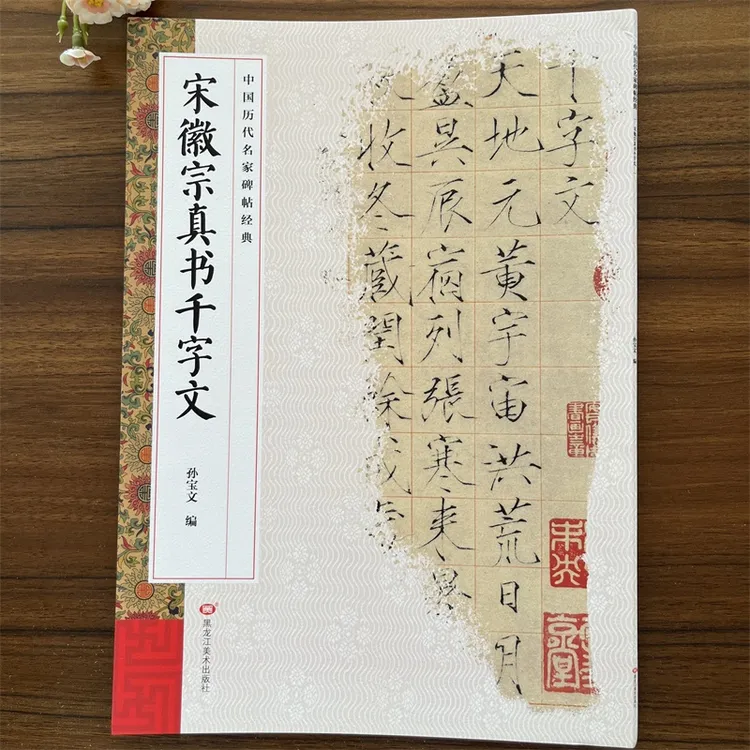 中国历代名家碑帖经典
宋徽宗真书千字文
孙宝文 编
黑龙江美术出版社
千字文
天地元黄宇宙洪荒日月
盈昃辰宿列張寒来暑
收冬藏閏餘成